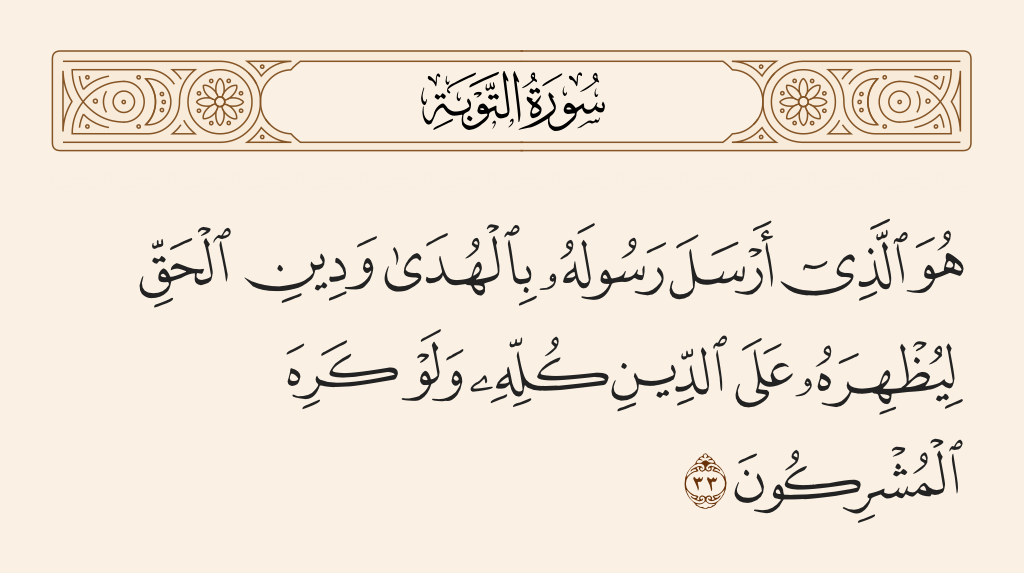 سُورَةُ التَّوْبَةِ
هُوَ ٱلَّذِىٓ أَرْسَلَ رَسُولَهُۥ بِٱلْهُدَىٰ وَدِينِ ٱلْحَقِّ
لِيُظْهِرَهُۥ عَلَى ٱلدِّينِ كُلِّهِۦ وَلَوْ كَرِهَ
ٱلْمُشْرِكُونَ ٣٣